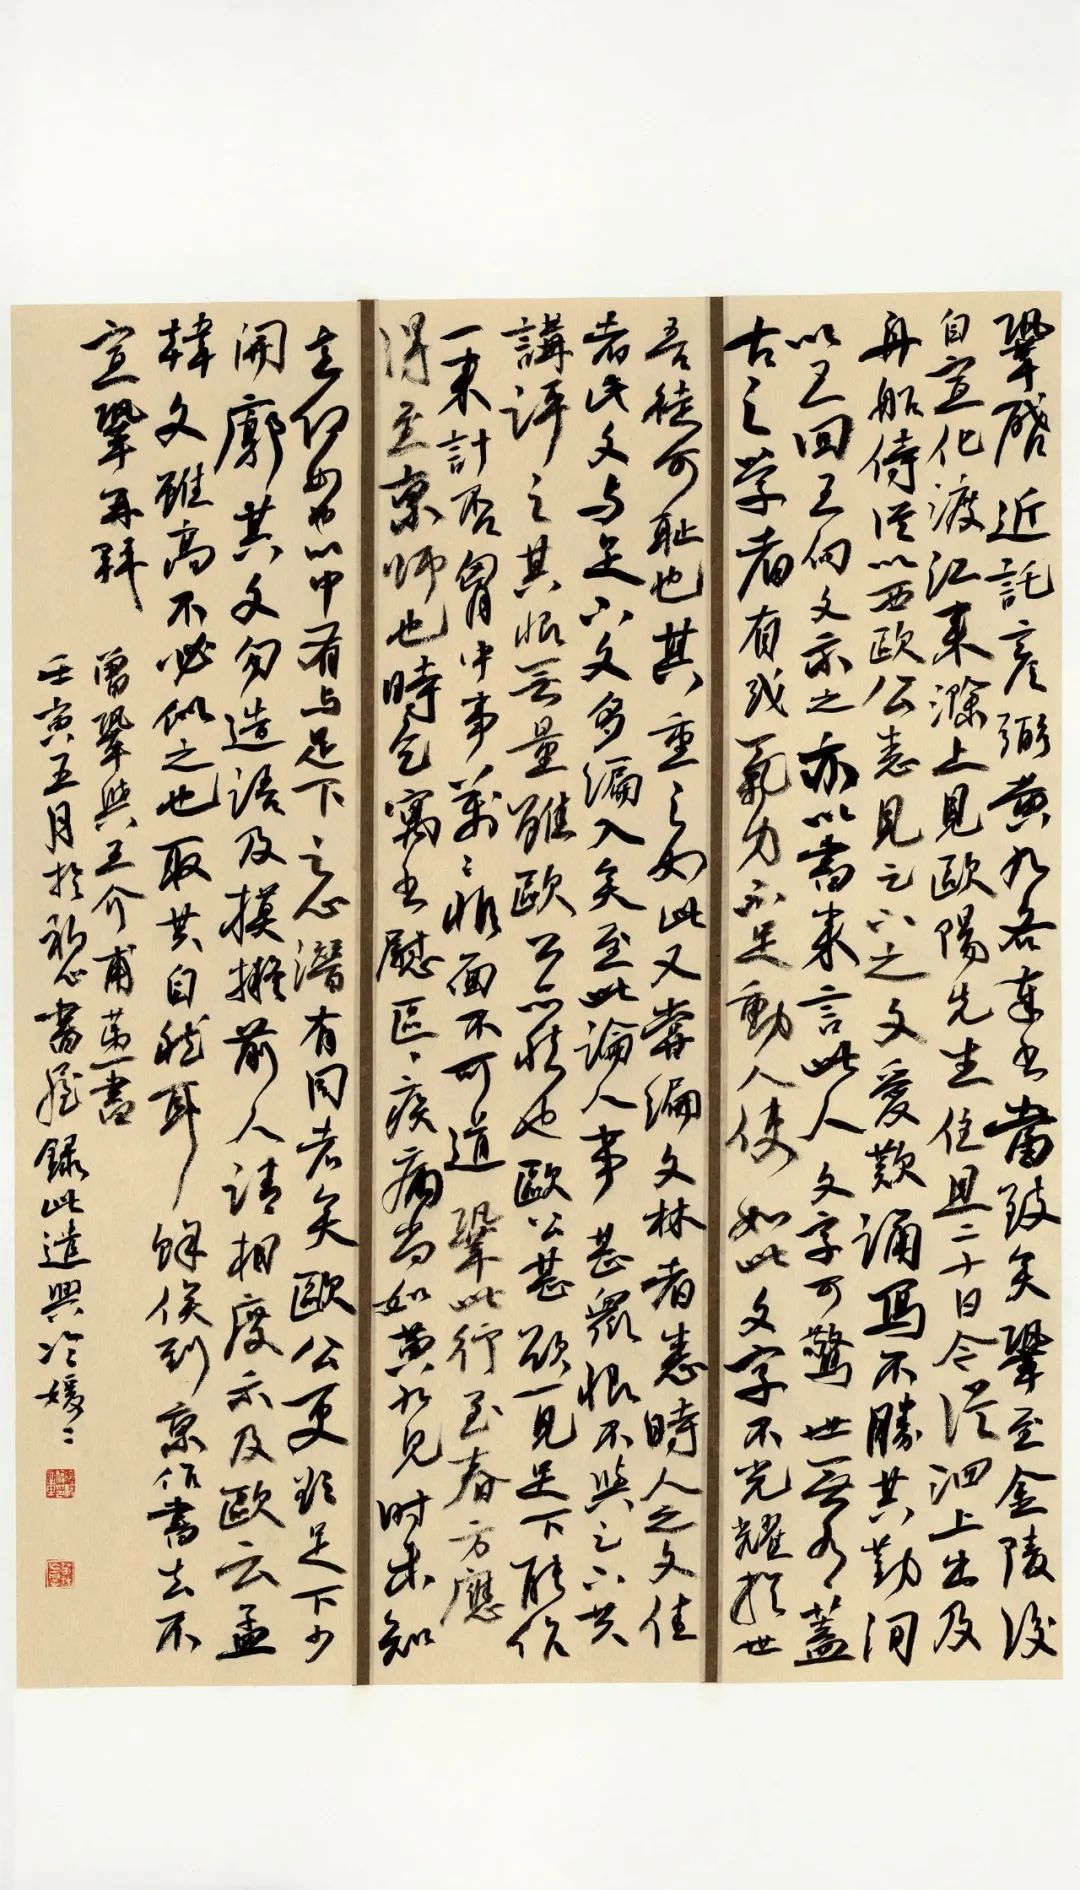 鞏啓近託彦弼黄九各奉书當致矣鞏至金陵後
自宣化渡江来滁上見歐陽先生住且二十日今從泗上出及
舟船侍從以西歐公悉見足下之文愛歎誦寫不勝其勤间
以王回王向文示之亦以書来言此人文字可驚世无有蓋
古之学者有或氣力不足動人使如此文字不光耀於世
吾徒可耻也其重之如此又嘗编文林者悉時人之文佳
者此文与足下文多编入矣至此論人事甚衆恨不與足下共
講評之其恨无量雖歐公亦然也歐公甚欲一見足下能作
一来計否胷中事萬〻非面不可道鞏此行至春方應
得至京师也時乞寓书慰區〻疾病尚如黄九见时未知
去何如也心中有与足下之意潜有同者矣歐公更欲足下少
開廓其文勿造語及摸擬前人請相度示及歐云孟
韓文雖高不必似之也取其自然耳餘俟到京作書去不
宣鞏再拜 曾鞏與王介甫第一書
壬寅五月於 書屋録此遣興